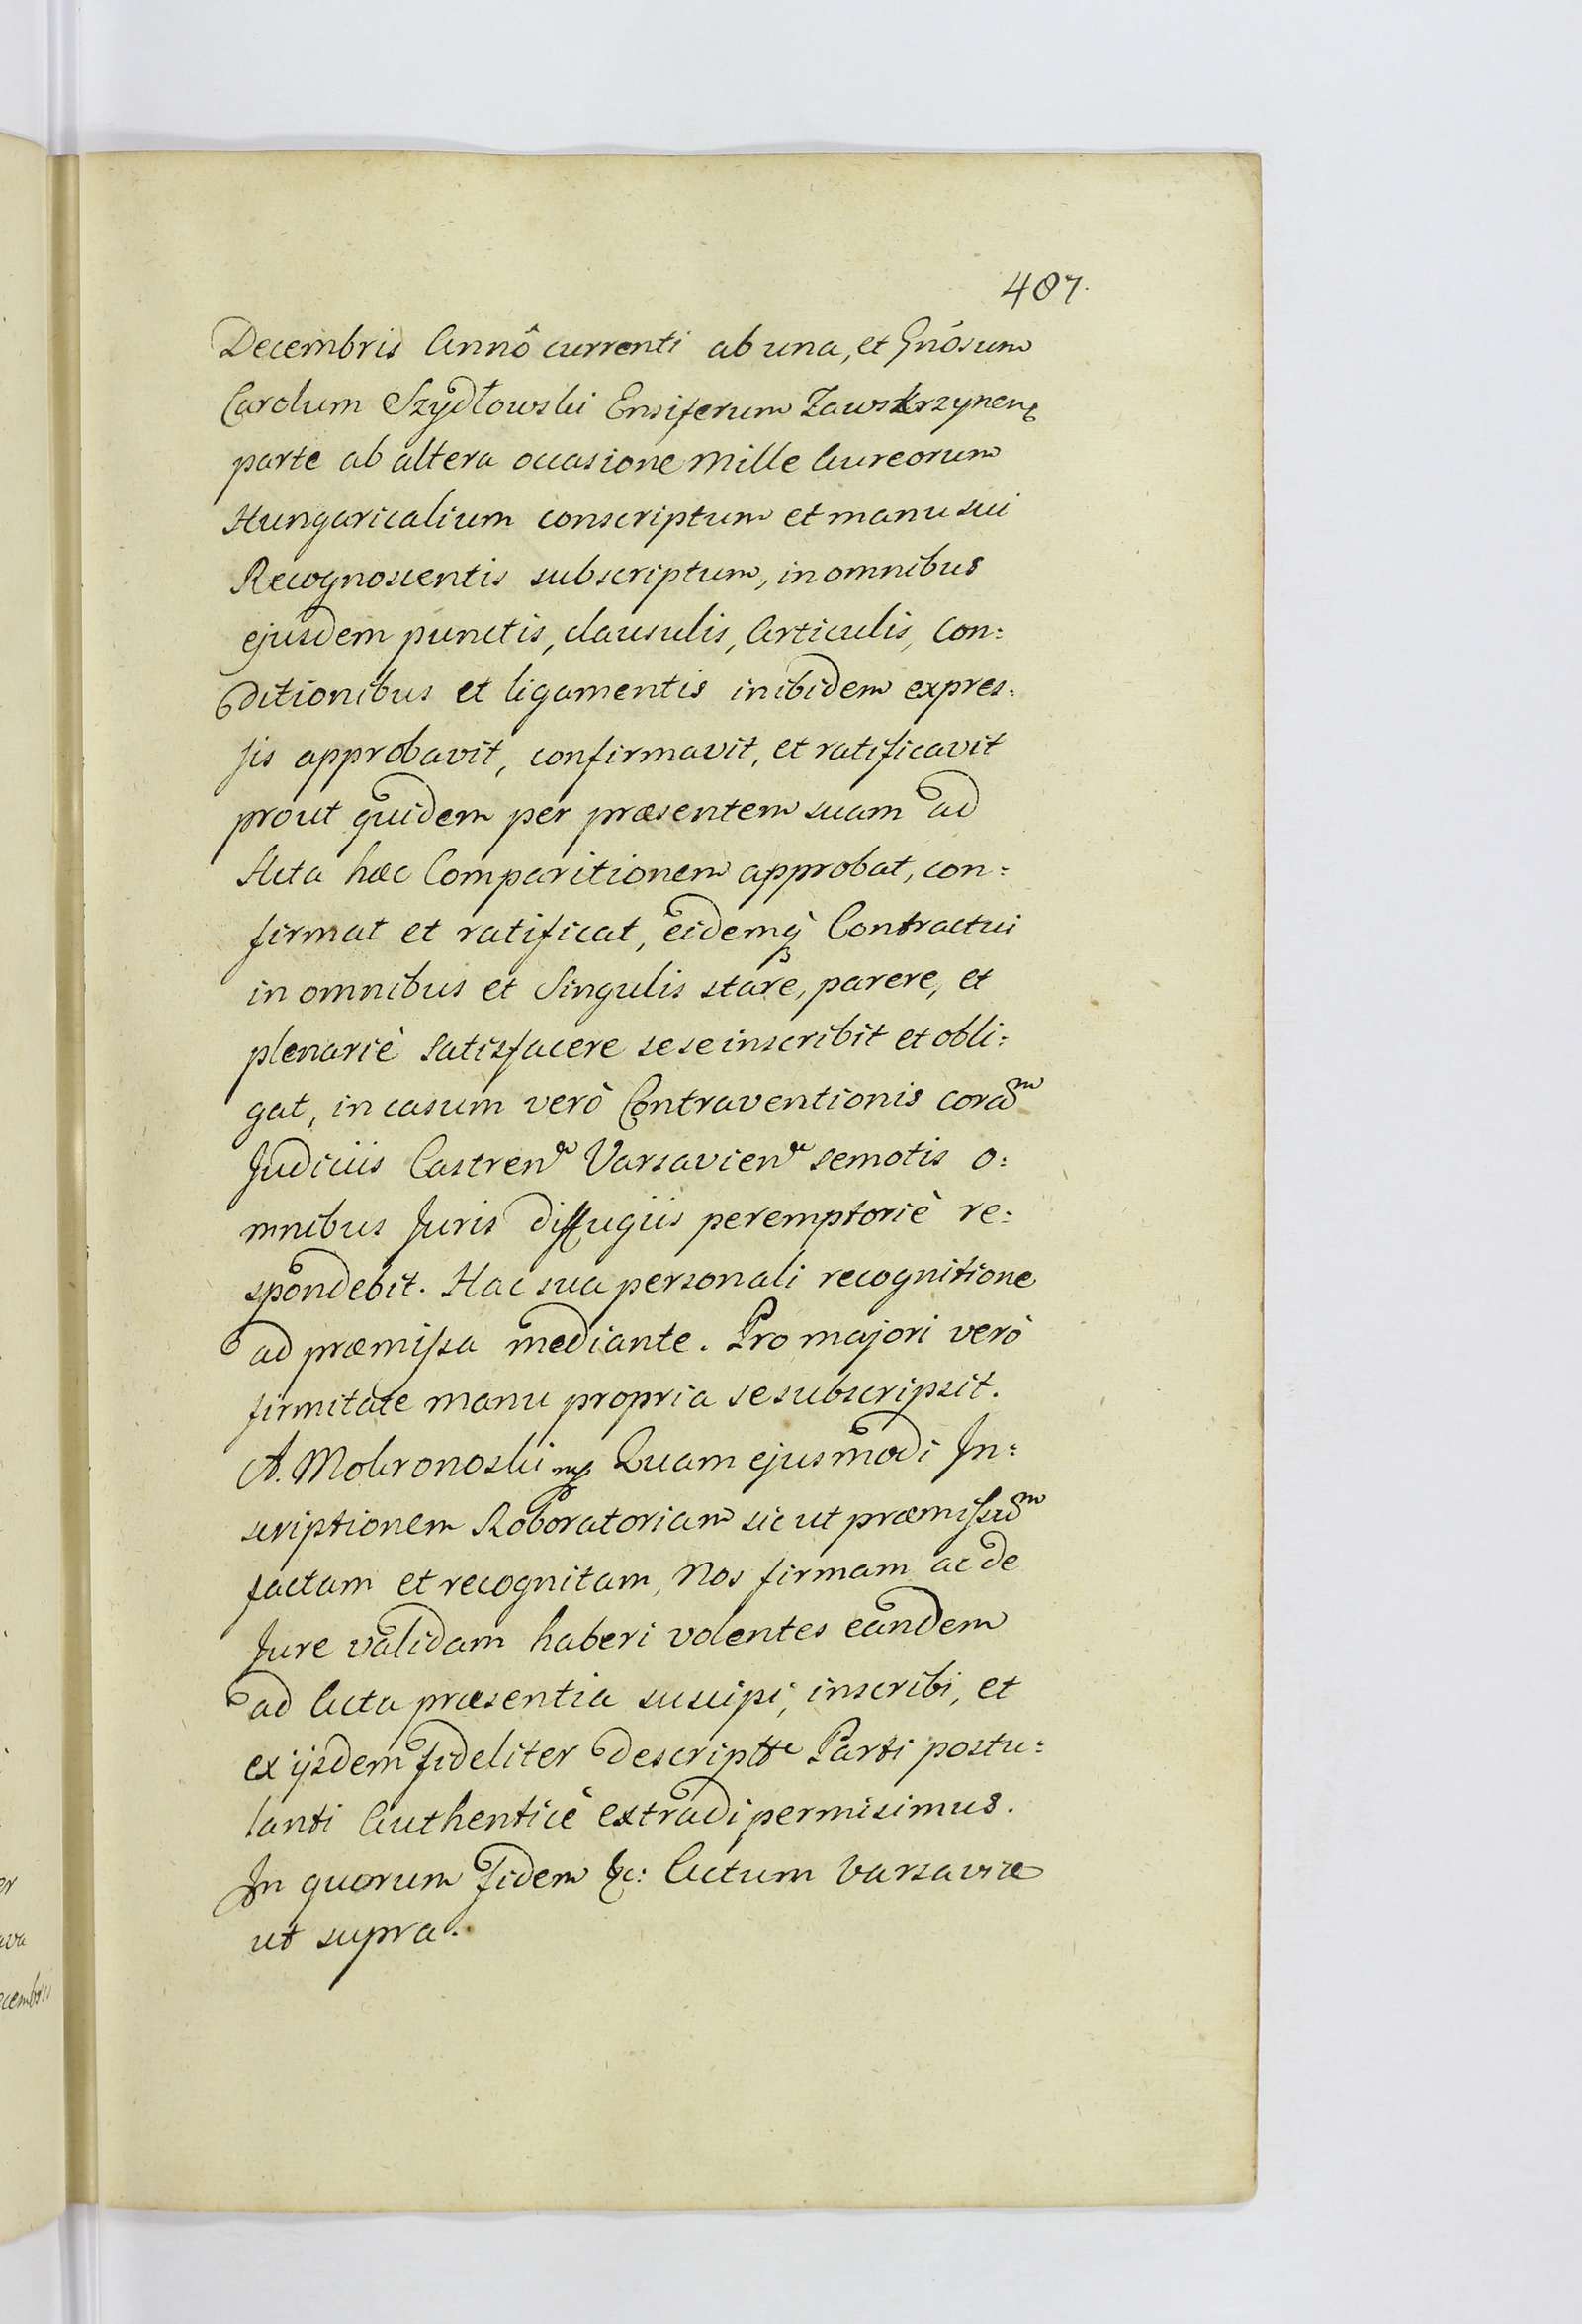 407.
Decembris Annô currenti ab una, et Gnôsum
Carolum Szydłowski Ensiferum Zawskrzynens
parte ab altera occasione Mille Aureorum
Hungaricalium conscriptum et manu sui
Recognoscentis subscriptum, in omnibus
ejusdem punctis, clausulis, Articulis, Con:
ditionibus et ligamentis inibidem expres:
sis approbavit, confirmavit, et ratificavit
prout quidem per præsentem suam ad
Acta hæc Comparitionem approbat, con:
firmat et ratificat, eidemq Contractui
in omnibus et Singulis stare, parere, et
plenariè Satisfacere sese inscribit et obli:
gat, in casum verò Contraventionis coram
Judiciis Castren Varsavien semotis o:
mnibus Juris diffugiis peremptoriè re:
spondebit. Hac sua personali recognitione
ad præmissa mediante. Pro majori verò
firmitate manu propria se subscripsit.
A. Mokronoski mp Quam ejusmodi In:
scriptionem Roboratoriam sic ut præmissum
factam et recognitam, Nos firmam ac de
Jure validam haberi volentes eandem
ad Acta præsentia suscipi, inscribi, et
ex ijsdem fideliter descriptte Parti postu:
lanti Authenticè extradi permisimus.
In quorum Fidem &c: Actum Varsaviæ
ut supra.